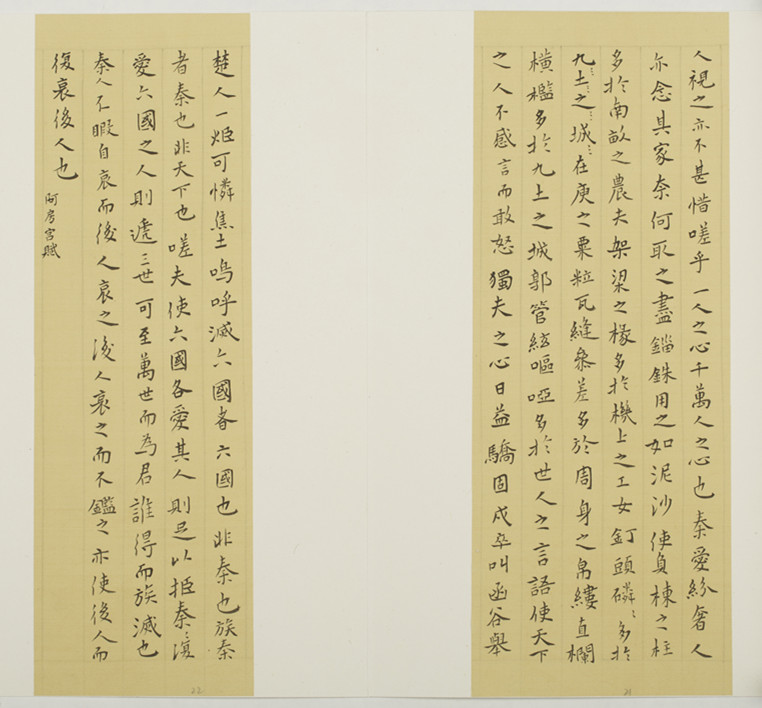 人視之亦不甚惜嗟乎一人之心千萬人之心也秦愛紛奢人
亦念其家奈何取之盡錙銖用之如泥沙使負棟之柱
多於南畝之農夫架梁之椽多於機上之工女釘頭磷〻多於
九土之城在庾之粟粒瓦縫參差多於周身之帛縷直欄
橫檻多於九土之城郭管絃嘔啞多於世人之言語使天下
之人不感言而敢怒獨夫之心日益驕固戍卒叫函谷舉
21
楚人一炬可憐焦土嗚呼滅六國者六國也非秦也族秦
者秦也非天下也嗟夫使六國各愛其人則足以拒秦〻復
愛六國之人則遞三世可至萬世而為君誰得而族滅也
秦人不暇自哀而後人哀之後人哀之而不鑑之亦使後人而
復哀後人也
阿房宮賦
22